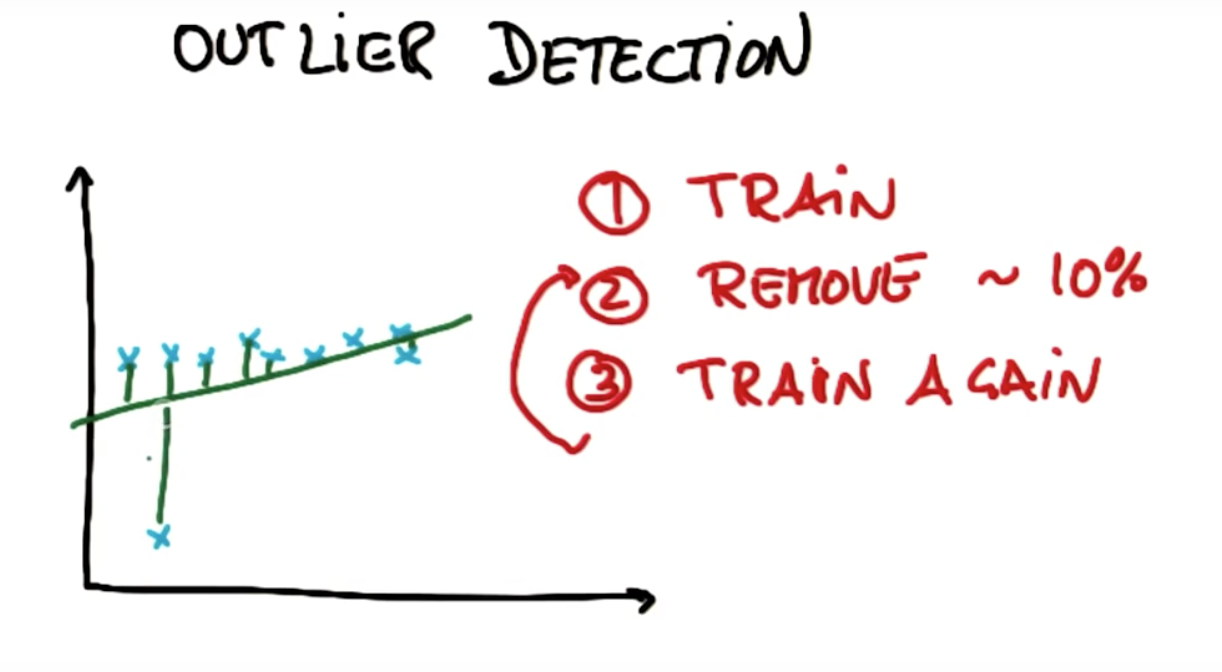 OUTLiER DETECTiON
① TRAiN
② REMOVE ~ 10%
③ TRAiN AGAiN